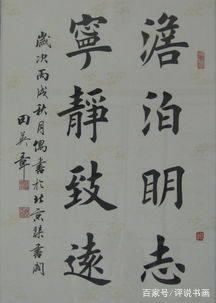 澹泊明志
寧靜致遠
歲次丙戌秋月偶書於北京
田英章
百家号/评说书画